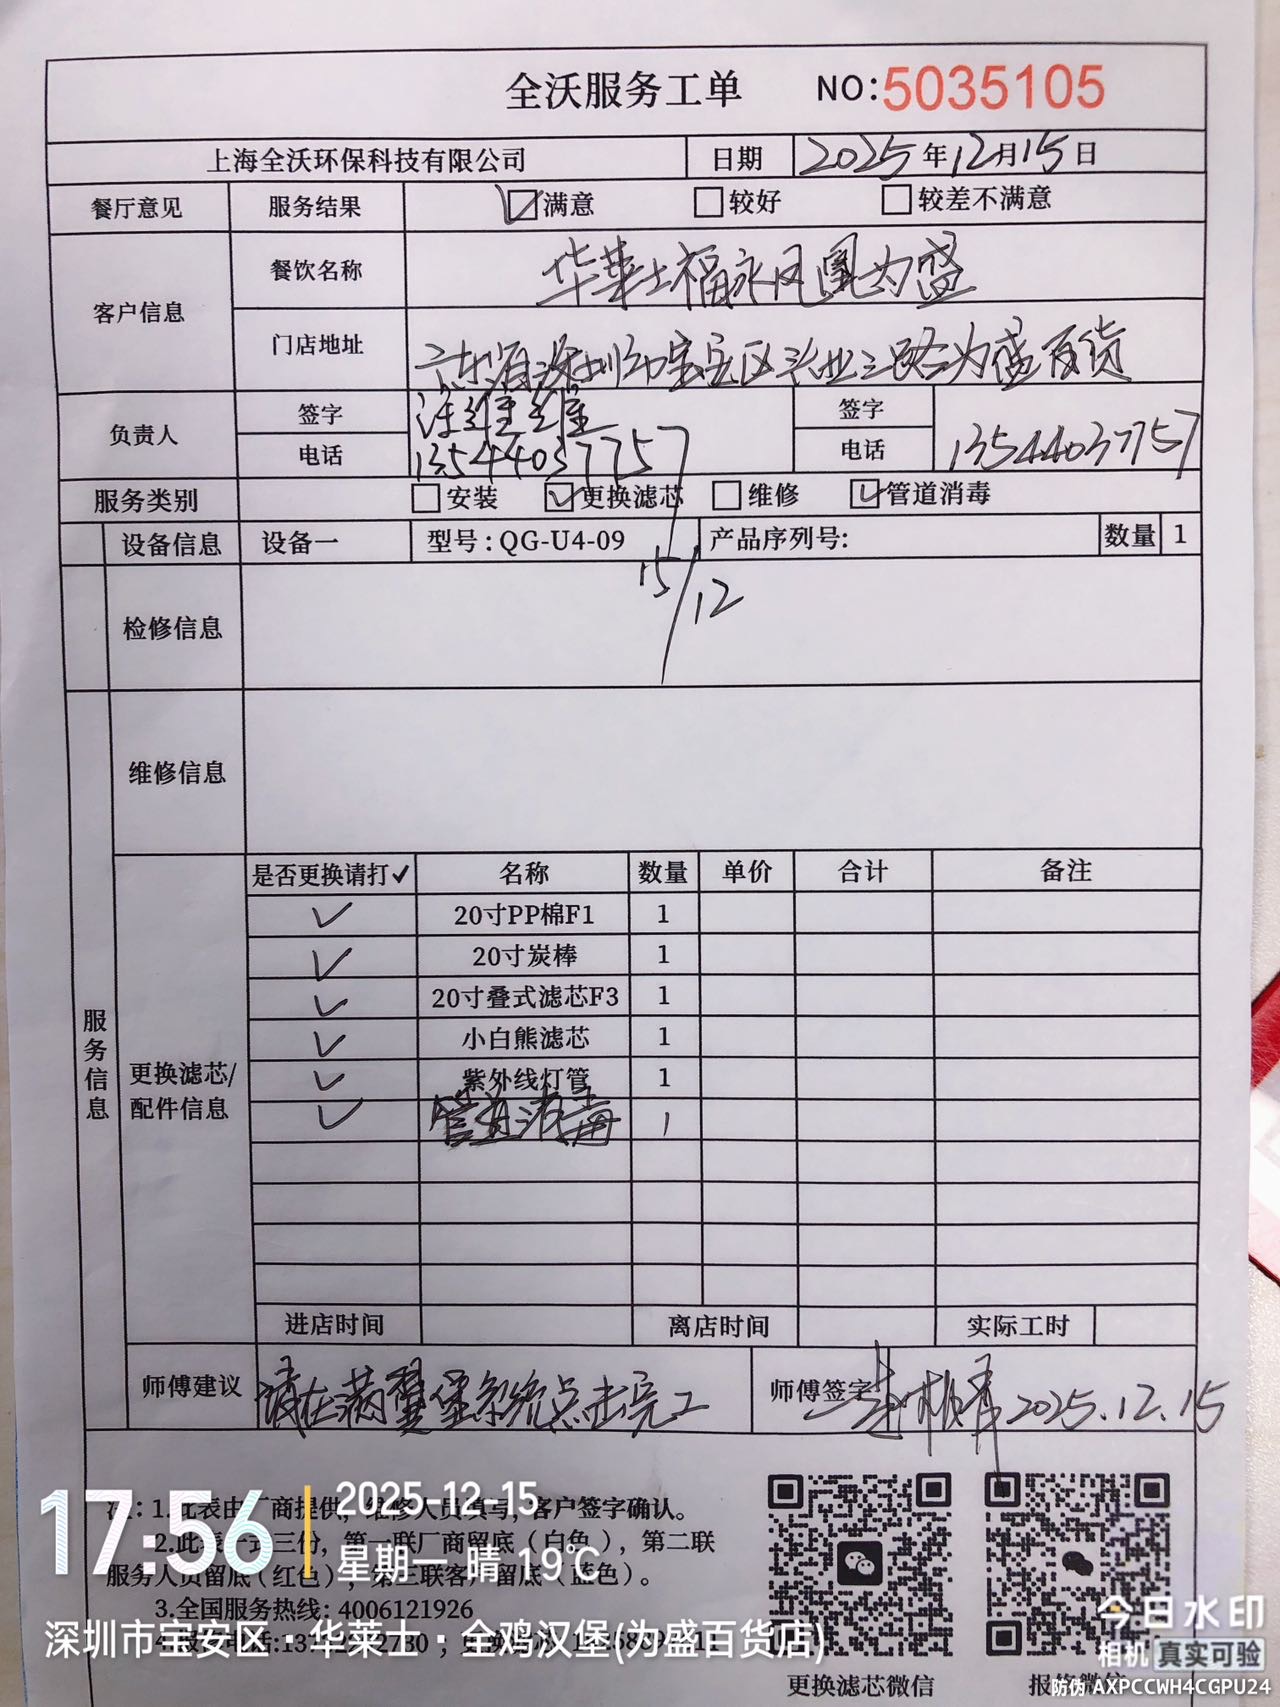 全沃服务工单 NO:5035105
上海全沃环保科技有限公司 日期 2025年12月15日
餐厅意见 服务结果 ☑满意 □较好 □较差不满意
客户信息 餐饮名称 华莱士福永凤凰为盛
门店地址 广东省深圳市宝安区兴业三路为盛百货
负责人 签字 签字
电话 13544037757 电话 13544037757
服务类别 □安装 ☑更换滤芯 □维修 ☑管道消毒
设备信息 设备一 型号:QG-U4-09 产品序列号: 数量 1
15/12
检修信息
维修信息
服务信息
更换滤芯/配件信息
是否更换请打✓ 名称 数量 单价 合计 备注
✓ 20寸PP棉F1 1
✓ 20寸炭棒 1
✓ 20寸叠式滤芯F3 1
✓ 小白熊滤芯 1
✓ 紫外线灯管 1
✓ 管道消毒 1
进店时间 离店时间 实际工时
师傅建议 请在满 系统点击完工 师傅签字 2025.12.15
注:1.此表由厂商提供,维修人员填写,客户签字确认。
2.此表一式三份,第一联厂商留底(白色),第二联
服务人员留底(红色),第三联客户留底(蓝色)。
3.全国服务热线:4006121926
更换滤芯微信 报修微信
17:56
2025-12-15
星期一 晴 19℃
深圳市宝安区·华莱士·全鸡汉堡(为盛百货店)
今日水印
相机 真实可验
防伪 AXPCCWH4CGPU24